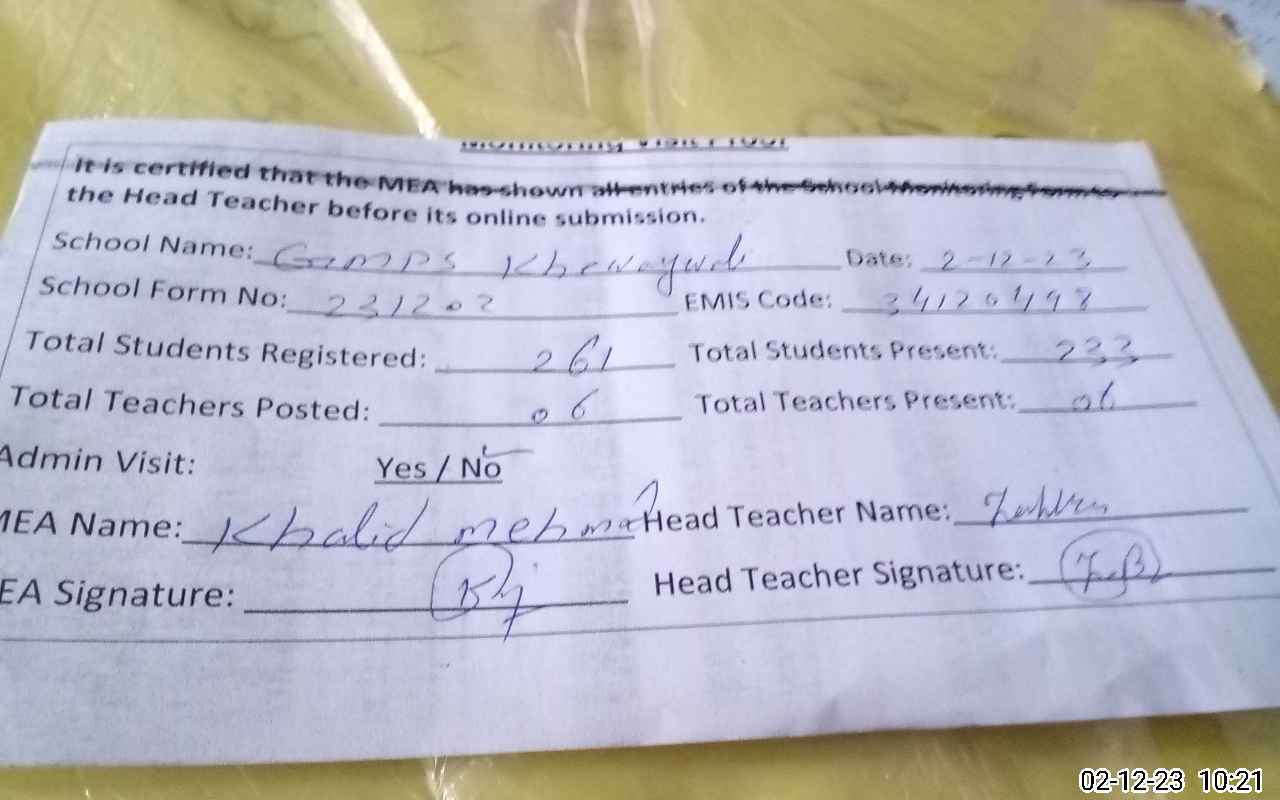 Monitoring Visit Proof
It is certified that the MEA has shown all entries of the School Monitoring Form to
the Head Teacher before its online submission.
School Name: GMPS Date: 2-12-23
School Form No: 231202 EMIS Code: 34120498
Total Students Registered: 261 Total Students Present: 233
Total Teachers Posted: 06 Total Teachers Present: 06
Admin Visit: Yes / No
MEA Name: Khalid mehmad Head Teacher Name:
EA Signature: Head Teacher Signature:
02-12-23 10:21